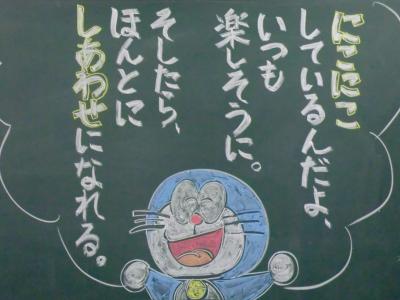 にこにこ
しているんだよ、
いつも
楽しそうに。
そしたら、
ほんとに
しあわせになれる。